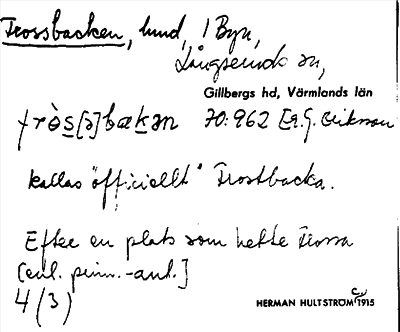 Trossbacken, lund, 1 Byn,
Långserud sn,
Gillbergs hd, Värmlands län
trɵ̀s[ə]bakən 70:962 [E.G. Eriksson
kallas "officiellt" Trostbacka.
Efter en plats som hette Trossa
[enl. prim.-ant.]
4 (3)
HERMAN HULTSTRÖM 1915